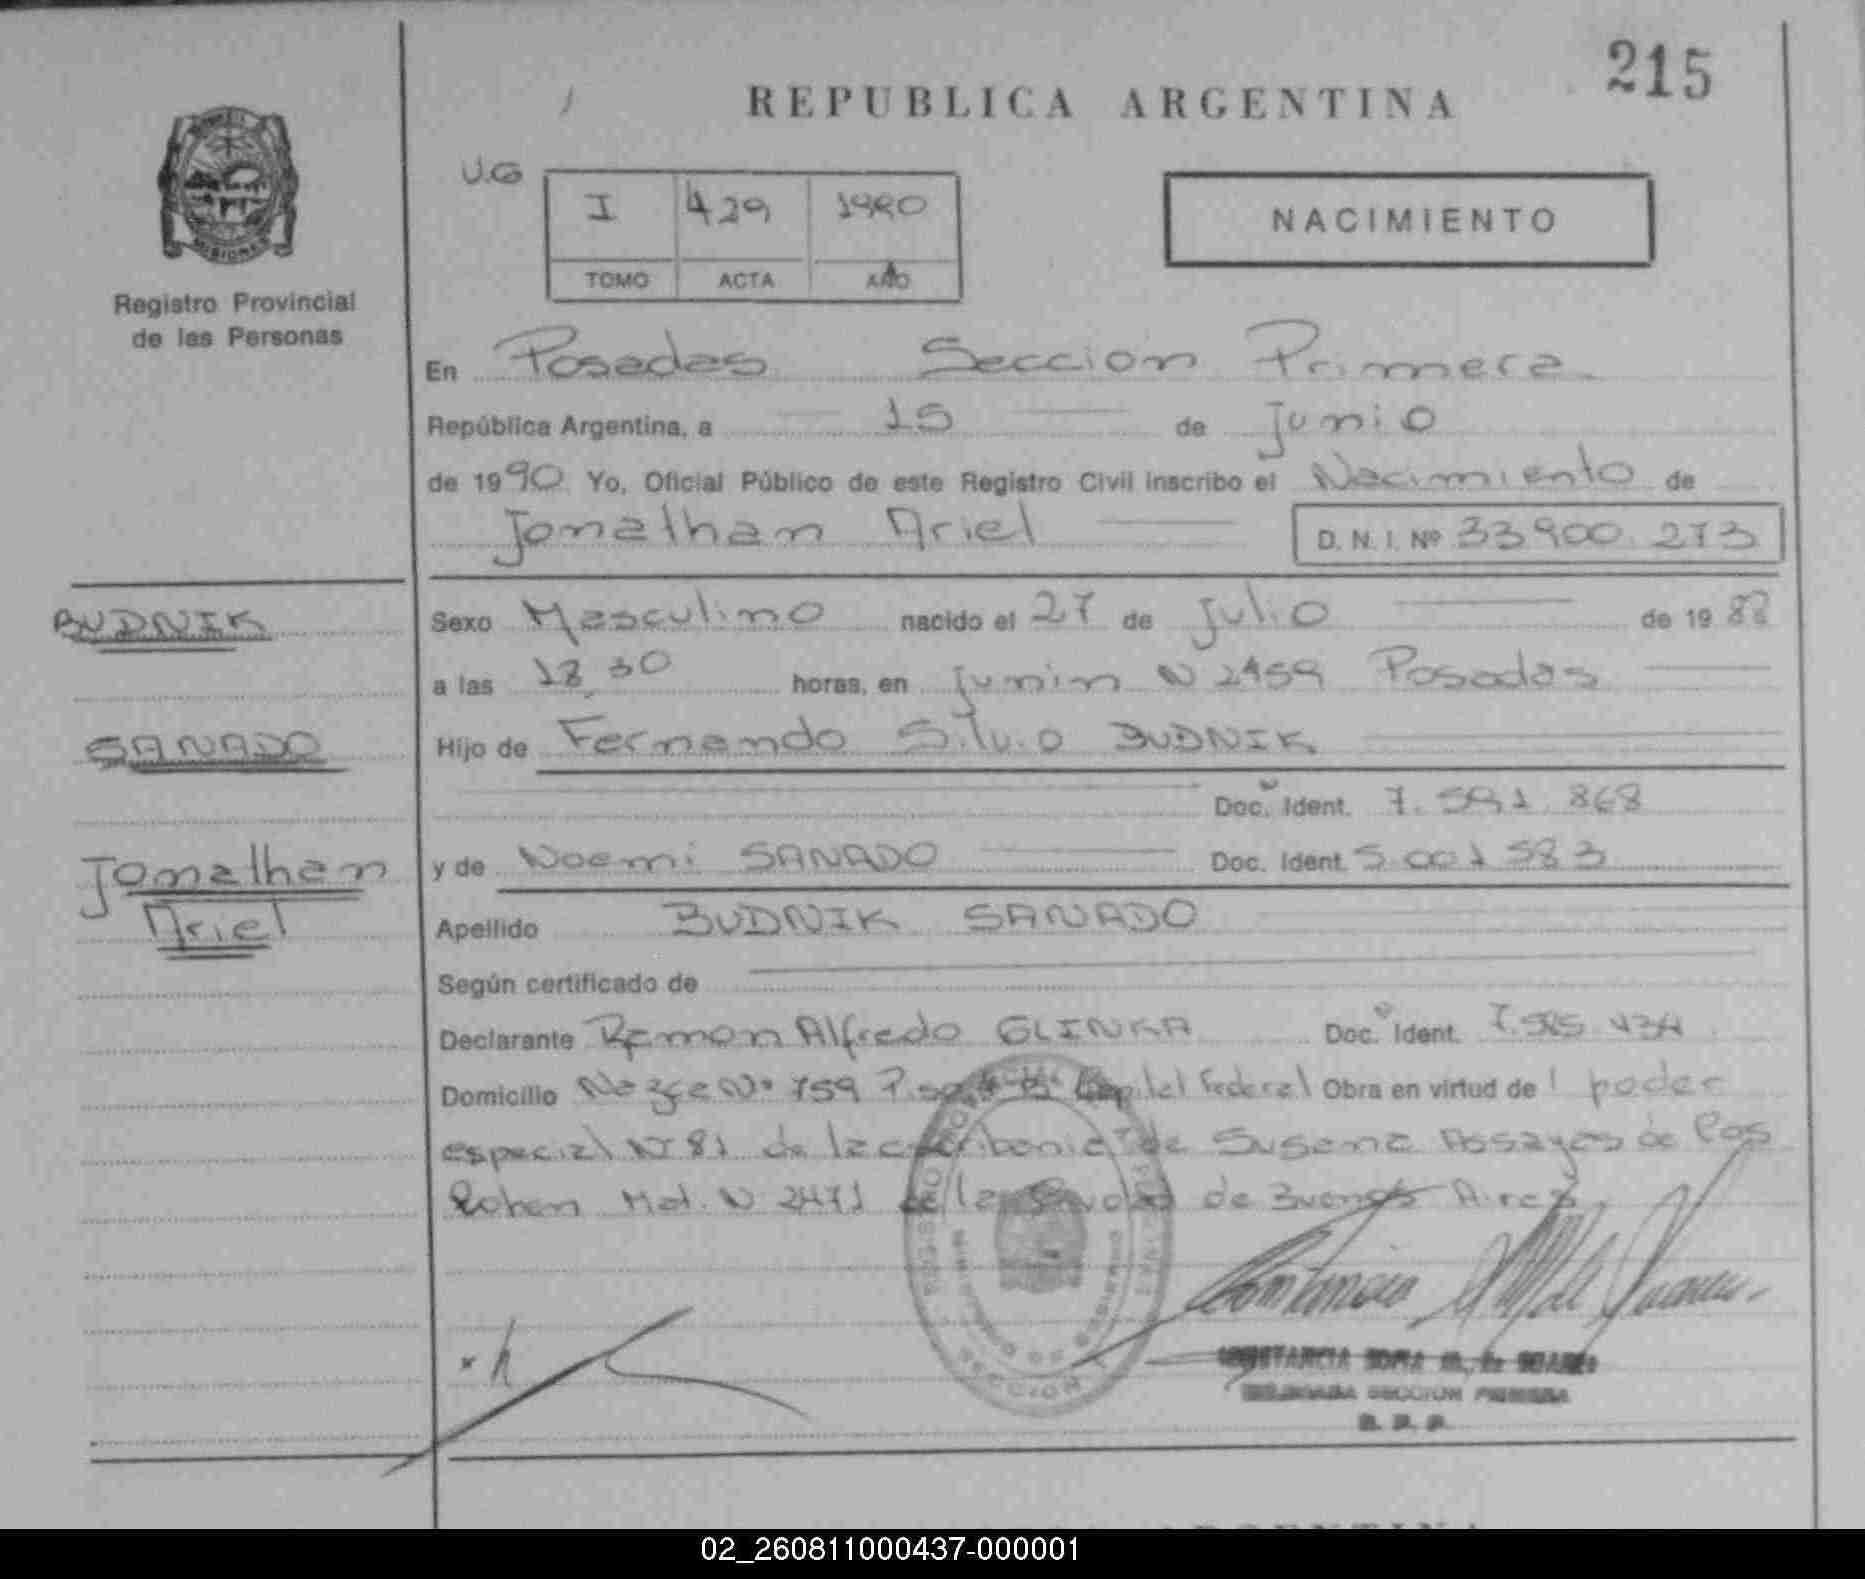 215
REPUBLICA ARGENTINA
U.G
I 429 1990
TOMO ACTA AÑO
NACIMIENTO
MISIONES
Registro Provincial
de las Personas
En Posadas Seccion Primera
República Argentina, a 15 de Junio
de 1990 Yo, Oficial Público de este Registro Civil inscribo el Nacimiento de
Jonathan Ariel D. N. I. Nº 33900.273
BUDNIK
SANADO
Jonathan
Ariel
Sexo Masculino nacido el 27 de Julio de 1988
a las 18,30 horas, en Junin N 2459 Posadas
Hijo de Fernando Silvio BUDNIK
Doc. Ident. 7.591.868
y de Noemi SANADO Doc. Ident. 5.001583
Apellido BUDNIK SANADO
Según certificado de
Declarante Ramon Alfredo GLINKA Doc. Ident.
Domicilio Nazca Nº 759 Piso Capital Federal Obra en virtud de poder
especial Nº 81 de la escribania de Susana Assayas de
Cohen Mat. N 2471 de la de Buenos Aires
CONSTANCIA SOFIA M. de SUAREZ
DELEGADA SECCION PRIMERA
R. P. P.
02_260811000437-000001